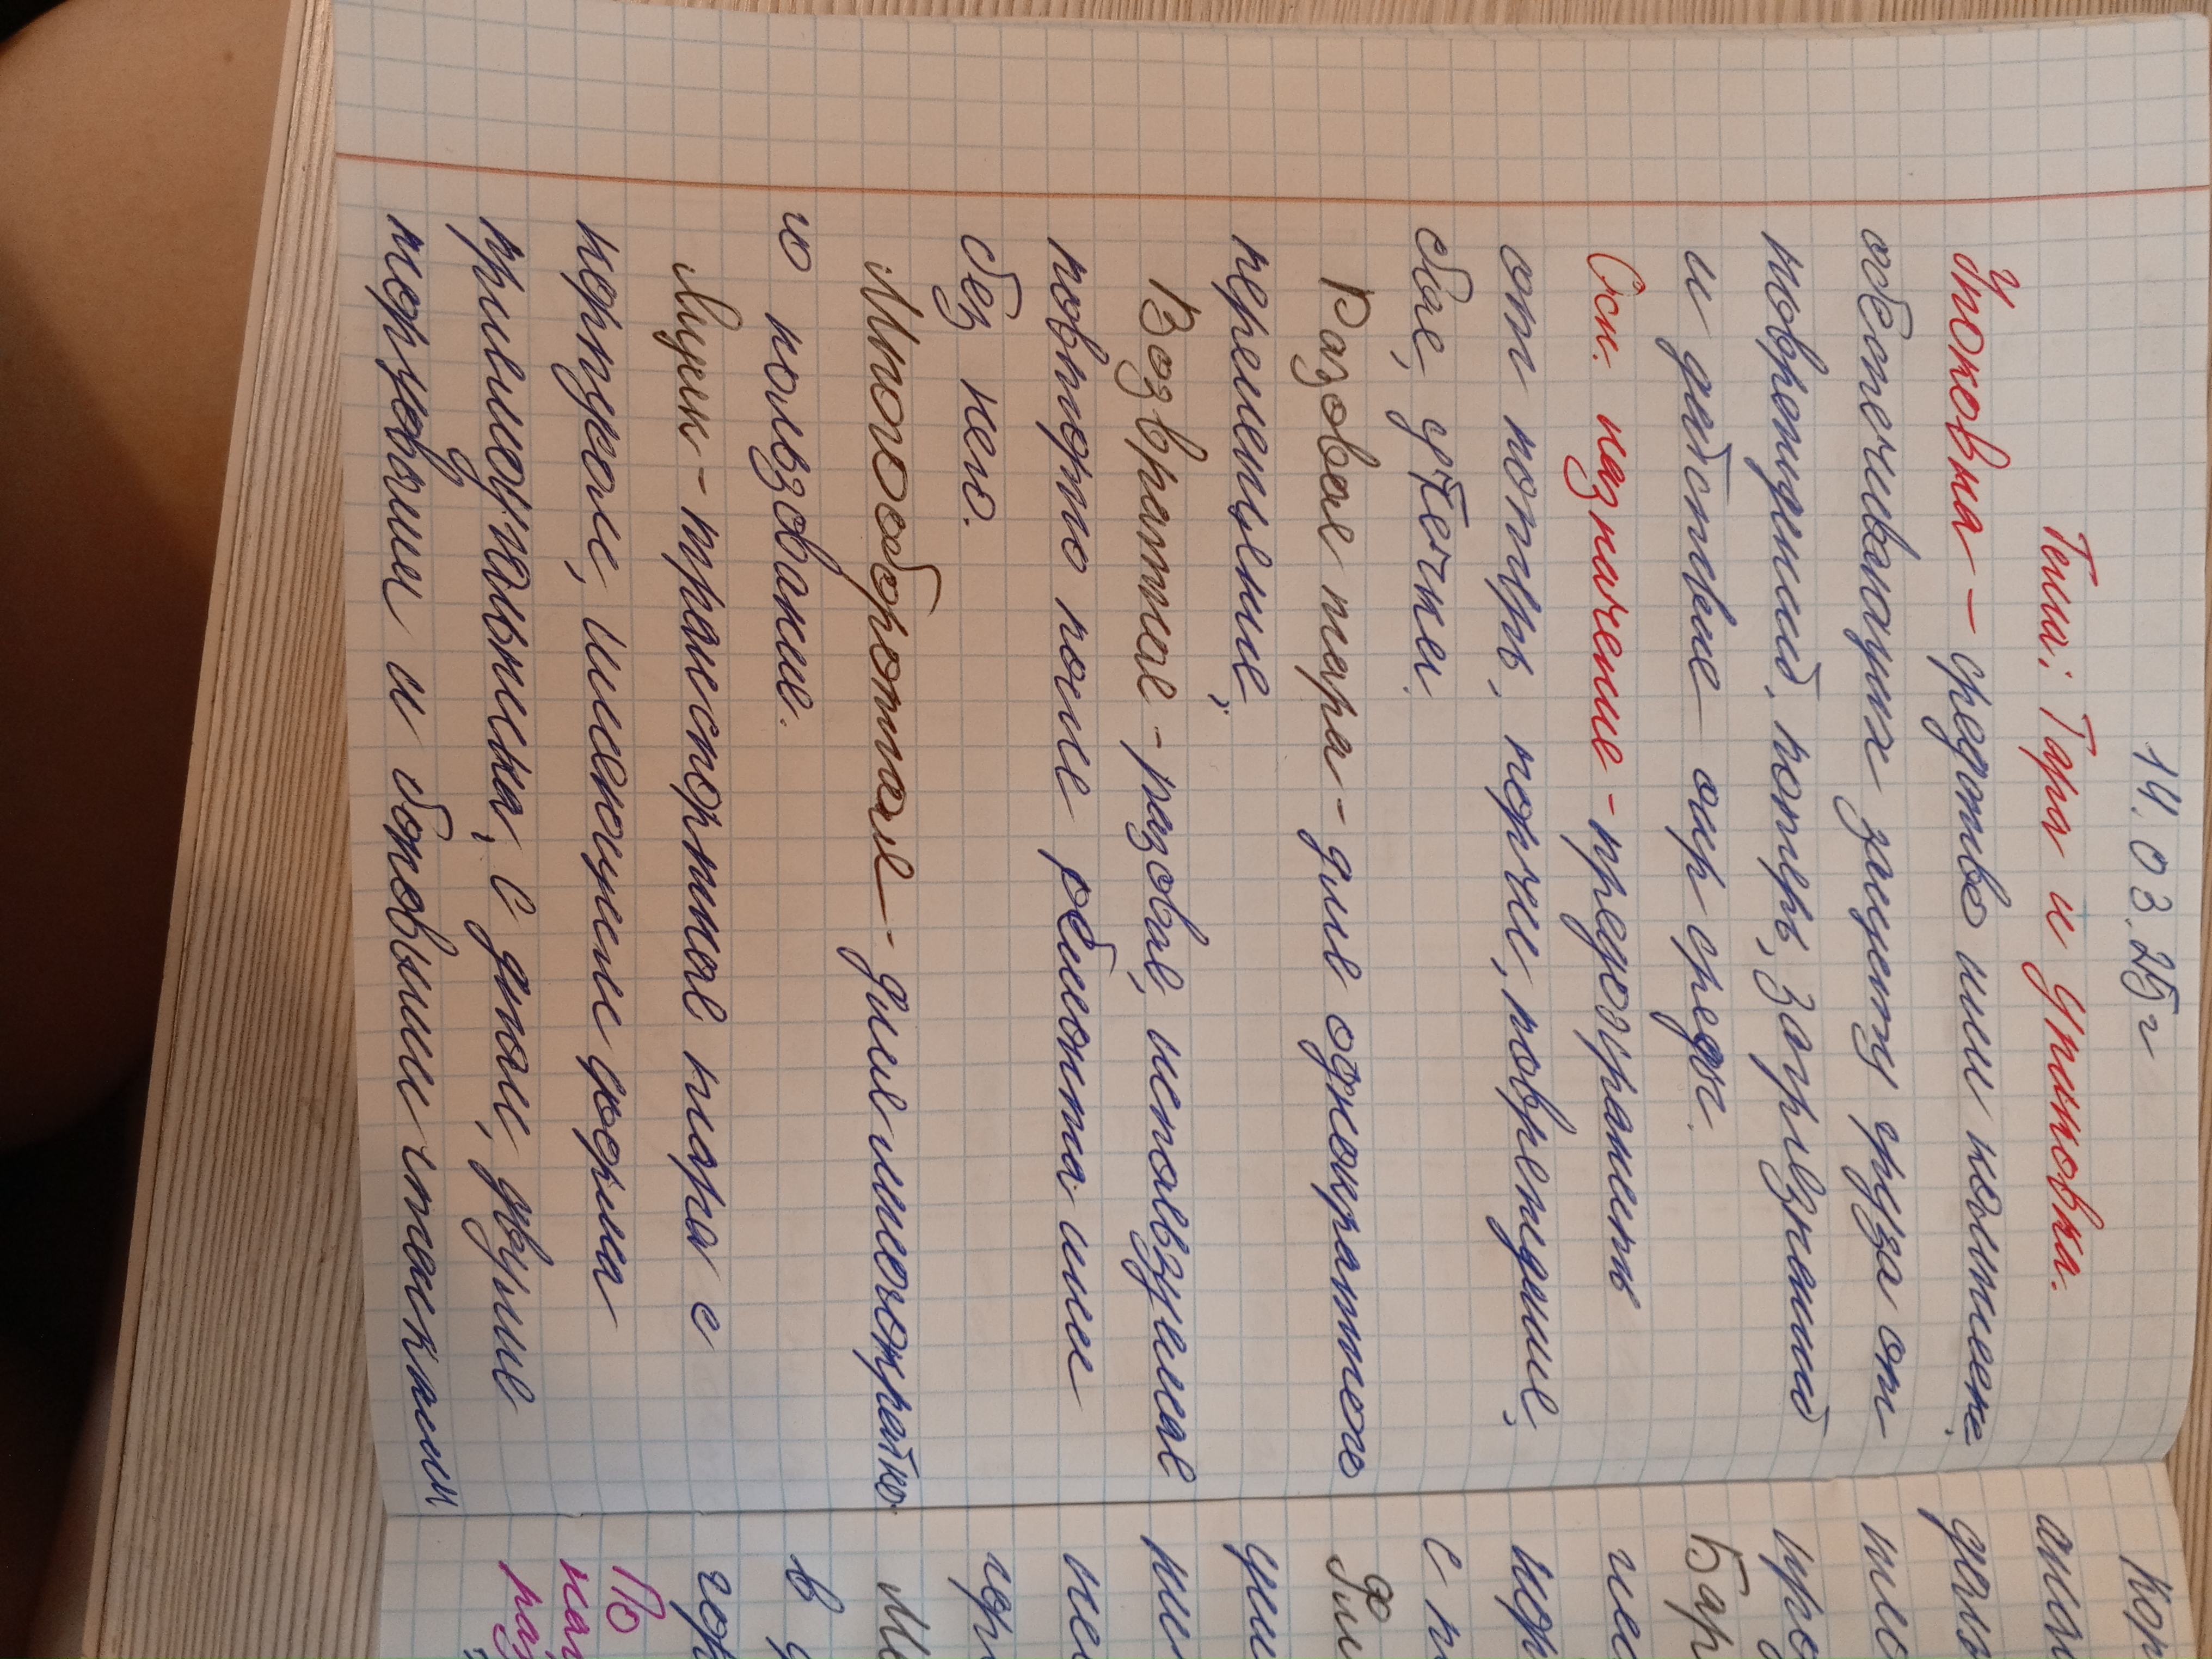 14.03.25г
Тема: Тара и упаковка.
Упаковка – средство или комплекс,
обеспечивающих защиту груза от
повреждений, потерь, загрязнений
и действие окр среды.
Осн. назначение – предохранить
от потерь, порчее, повреждение,
боя, утечки.
Разовая тара – для однократного
перемещение;
Возвратная – разовая, использующая
повторно после ремонта или
без него.
Многооборотная – для многократно
го пользования.
Ящик – транспортная тара с
корпусом, имеющие форма
прямоугольника, с дном, двумя
торцовыми и боковыми стенками
кор
Бар
с п
Фля
в
По